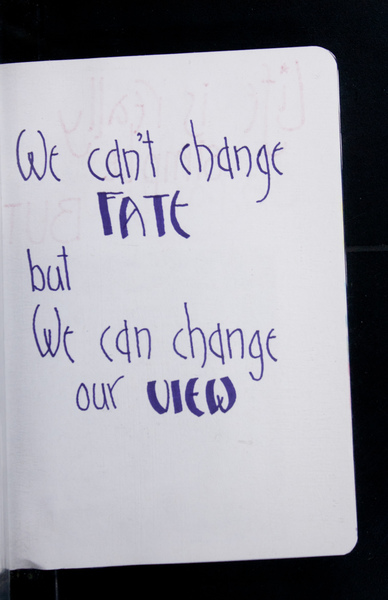 We can't change
FATE
but
We can change
our VIEW